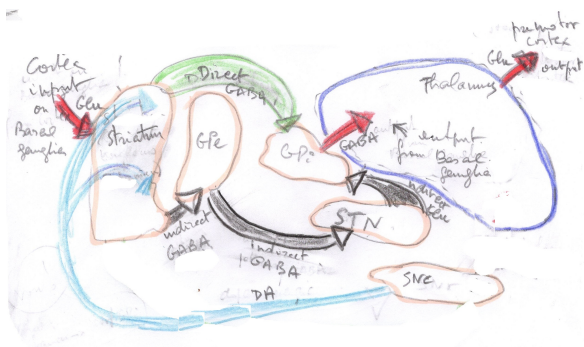 Cortex
input
on Glu
Basal
ganglia
Striatum
Direct
GABA
GPe
GPi
GABA
output
from Basal
ganglia
Thalamus
Glu
premotor
cortex
output
indirect
GABA
indirect
GABA
STN
indirect
Glu
SNc
DA